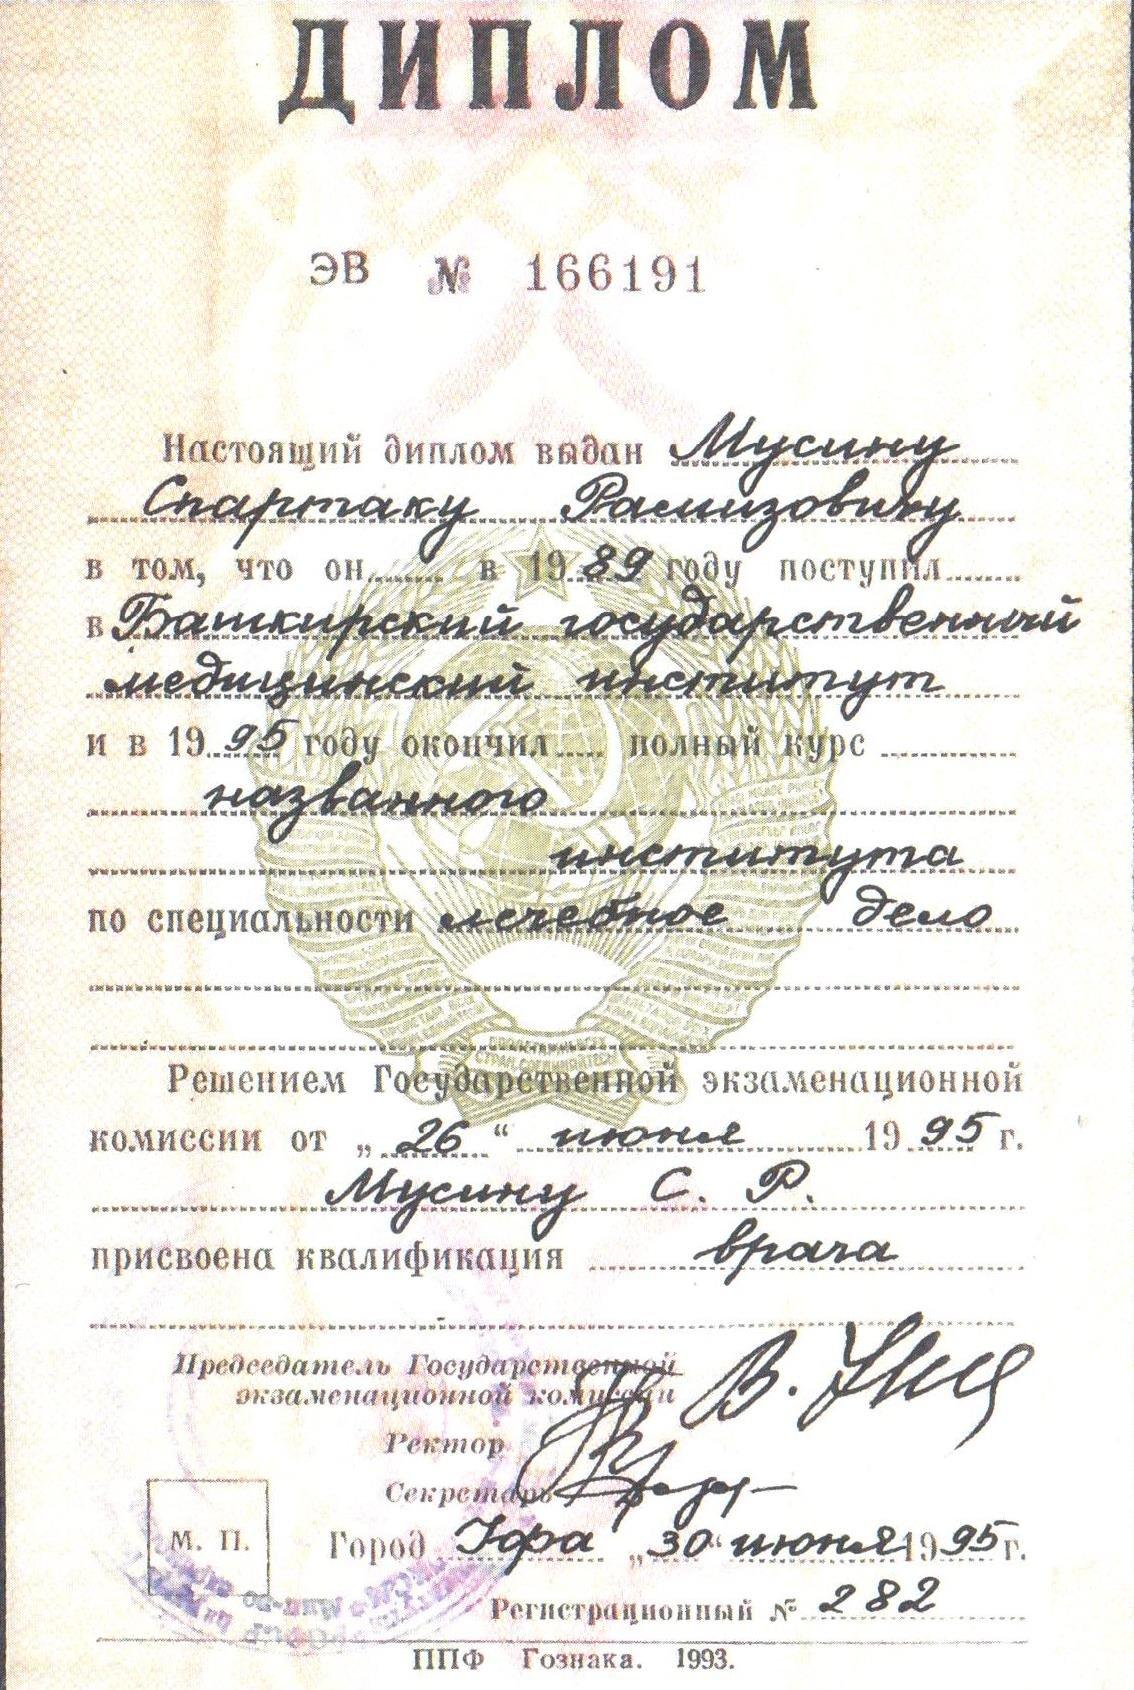 ДИПЛОМ
ЭВ № 166191
Настоящий диплом выдан Мусину
Спартаку Рамизовичу
в том, что он в 1989 году поступил
в Башкирский государственный
медицинский институт
и в 1995 году окончил полный курс
названного
института
по специальности лечебное дело
Решением Государственной экзаменационной
комиссии от „26“ июня 1995 г.
Мусину С. Р.
присвоена квалификация врача
Председатель Государственной
экзаменационной комиссии
Ректор
Секретарь
М. П.
Город Уфа „30“ июня 1995 г.
Регистрационный № 282
ППФ Гознака. 1993.